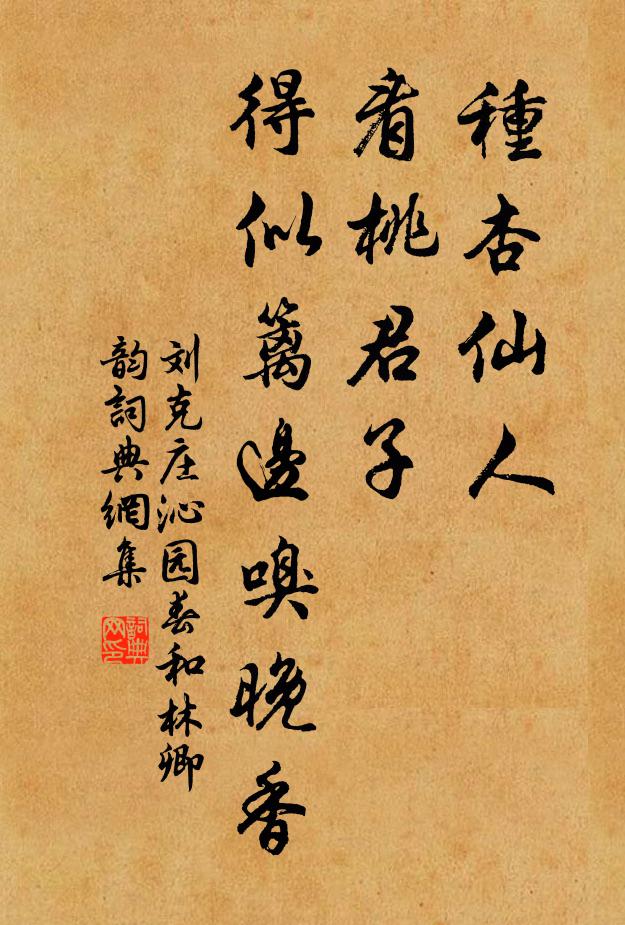 種杏仙人
看桃君子
得似籬邊嗅晚香
刘克庄沁园春和林卿
韵詞典網集
詞典网印